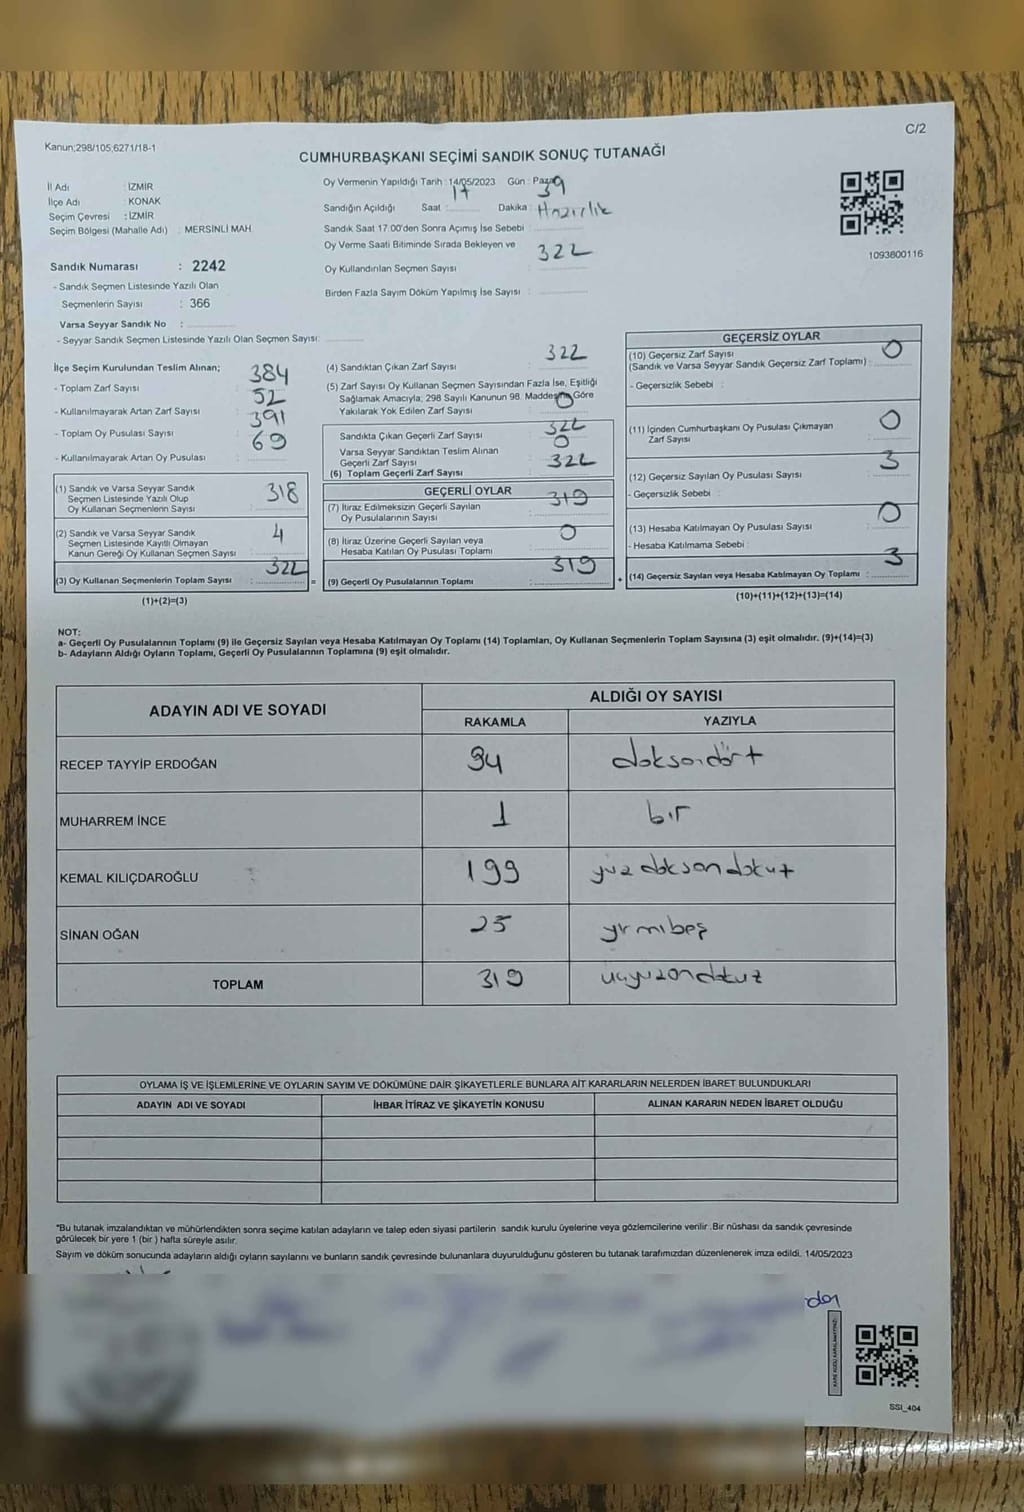 Kanun;298/105;6271/18-1
C/2
CUMHURBAŞKANI SEÇİMİ SANDIK SONUÇ TUTANAĞI
İl Adı : İZMİR
İlçe Adı : KONAK
Seçim Çevresi : İZMİR
Seçim Bölgesi (Mahalle Adı) : MERSİNLİ MAH.
Sandık Numarası : 2242
- Sandık Seçmen Listesinde Yazılı Olan
Seçmenlerin Sayısı : 366
Varsa Seyyar Sandık No :
- Seyyar Sandık Seçmen Listesinde Yazılı Olan Seçmen Sayısı:
Oy Vermenin Yapıldığı Tarih : 14/05/2023 Gün : Pazar
Sandığın Açıldığı Saat : 17 Dakika : 39
Sandık Saat 17.00'den Sonra Açımış İse Sebebi : Hazırlık
Oy Verme Saati Bitiminde Sırada Bekleyen ve
Oy Kullandırılan Seçmen Sayısı : 322
Birden Fazla Sayım Döküm Yapılmış İse Sayısı :
1093800116
İlçe Seçim Kurulundan Teslim Alınan;
- Toplam Zarf Sayısı : 384
- Kullanılmayarak Artan Zarf Sayısı : 52
- Toplam Oy Pusulası Sayısı : 391
- Kullanılmayarak Artan Oy Pusulası : 69
(1) Sandık ve Varsa Seyyar Sandık
Seçmen Listesinde Yazılı Olup
Oy Kullanan Seçmenlerin Sayısı : 318
(2) Sandık ve Varsa Seyyar Sandık
Seçmen Listesinde Kayıtlı Olmayan
Kanun Gereği Oy Kullanan Seçmen Sayısı : 4
(3) Oy Kullanan Seçmenlerin Toplam Sayısı : 322 =
(1)+(2)=(3)
(4) Sandıktan Çıkan Zarf Sayısı : 322
(5) Zarf Sayısı Oy Kullanan Seçmen Sayısından Fazla İse, Eşitliği
Sağlamak Amacıyla; 298 Sayılı Kanunun 98. Maddesine Göre
Yakılarak Yok Edilen Zarf Sayısı : 0
Sandıkta Çıkan Geçerli Zarf Sayısı : 322
Varsa Seyyar Sandıktan Teslim Alınan
Geçerli Zarf Sayısı : 0
(6) Toplam Geçerli Zarf Sayısı : 322
GEÇERLİ OYLAR
(7) İtiraz Edilmeksizin Geçerli Sayılan
Oy Pusulalarının Sayısı : 319
(8) İtiraz Üzerine Geçerli Sayılan veya
Hesaba Katılan Oy Pusulası Toplamı : 0
(9) Geçerli Oy Pusulalarının Toplamı : 319 +
GEÇERSİZ OYLAR
(10) Geçersiz Zarf Sayısı
(Sandık ve Varsa Seyyar Sandık Geçersiz Zarf Toplamı) : 0
- Geçersizlik Sebebi :
(11) İçinden Cumhurbaşkanı Oy Pusulası Çıkmayan
Zarf Sayısı : 0
(12) Geçersiz Sayılan Oy Pusulası Sayısı : 3
- Geçersizlik Sebebi :
(13) Hesaba Katılmayan Oy Pusulası Sayısı : 0
- Hesaba Katılmama Sebebi :
(14) Geçersiz Sayılan veya Hesaba Katılmayan Oy Toplamı : 3
(10)+(11)+(12)+(13)=(14)
NOT:
a- Geçerli Oy Pusulalarının Toplamı (9) ile Geçersiz Sayılan veya Hesaba Katılmayan Oy Toplamı (14) Toplamları, Oy Kullanan Seçmenlerin Toplam Sayısına (3) eşit olmalıdır. (9)+(14)=(3)
b- Adayların Aldığı Oyların Toplamı, Geçerli Oy Pusulalarının Toplamına (9) eşit olmalıdır.
ADAYIN ADI VE SOYADI ALDIĞI OY SAYISI
RAKAMLA YAZIYLA
RECEP TAYYİP ERDOĞAN 94 doksandört
MUHARREM İNCE 1 bir
KEMAL KILIÇDAROĞLU 199 yüzdoksandokuz
SİNAN OĞAN 25 yirmibeş
TOPLAM 319 üçyüzondokuz
OYLAMA İŞ VE İŞLEMLERİNE VE OYLARIN SAYIM VE DÖKÜMÜNE DAİR ŞİKAYETLERLE BUNLARA AİT KARARLARIN NELERDEN İBARET BULUNDUKLARI
ADAYIN ADI VE SOYADI İHBAR İTİRAZ VE ŞİKAYETİN KONUSU ALINAN KARARIN NEDEN İBARET OLDUĞU
*Bu tutanak imzalandıktan ve mühürlendikten sonra seçime katılan adayların ve talep eden siyasi partilerin sandık kurulu üyelerine veya gözlemcilerine verilir. Bir nüshası da sandık çevresinde
görülecek bir yere 1 (bir ) hafta süreyle asılır.
Sayım ve döküm sonucunda adayların aldığı oyların sayılarını ve bunların sandık çevresinde bulunanlara duyurulduğunu gösteren bu tutanak tarafımızdan düzenlenerek imza edildi. 14/05/2023
SSI_404